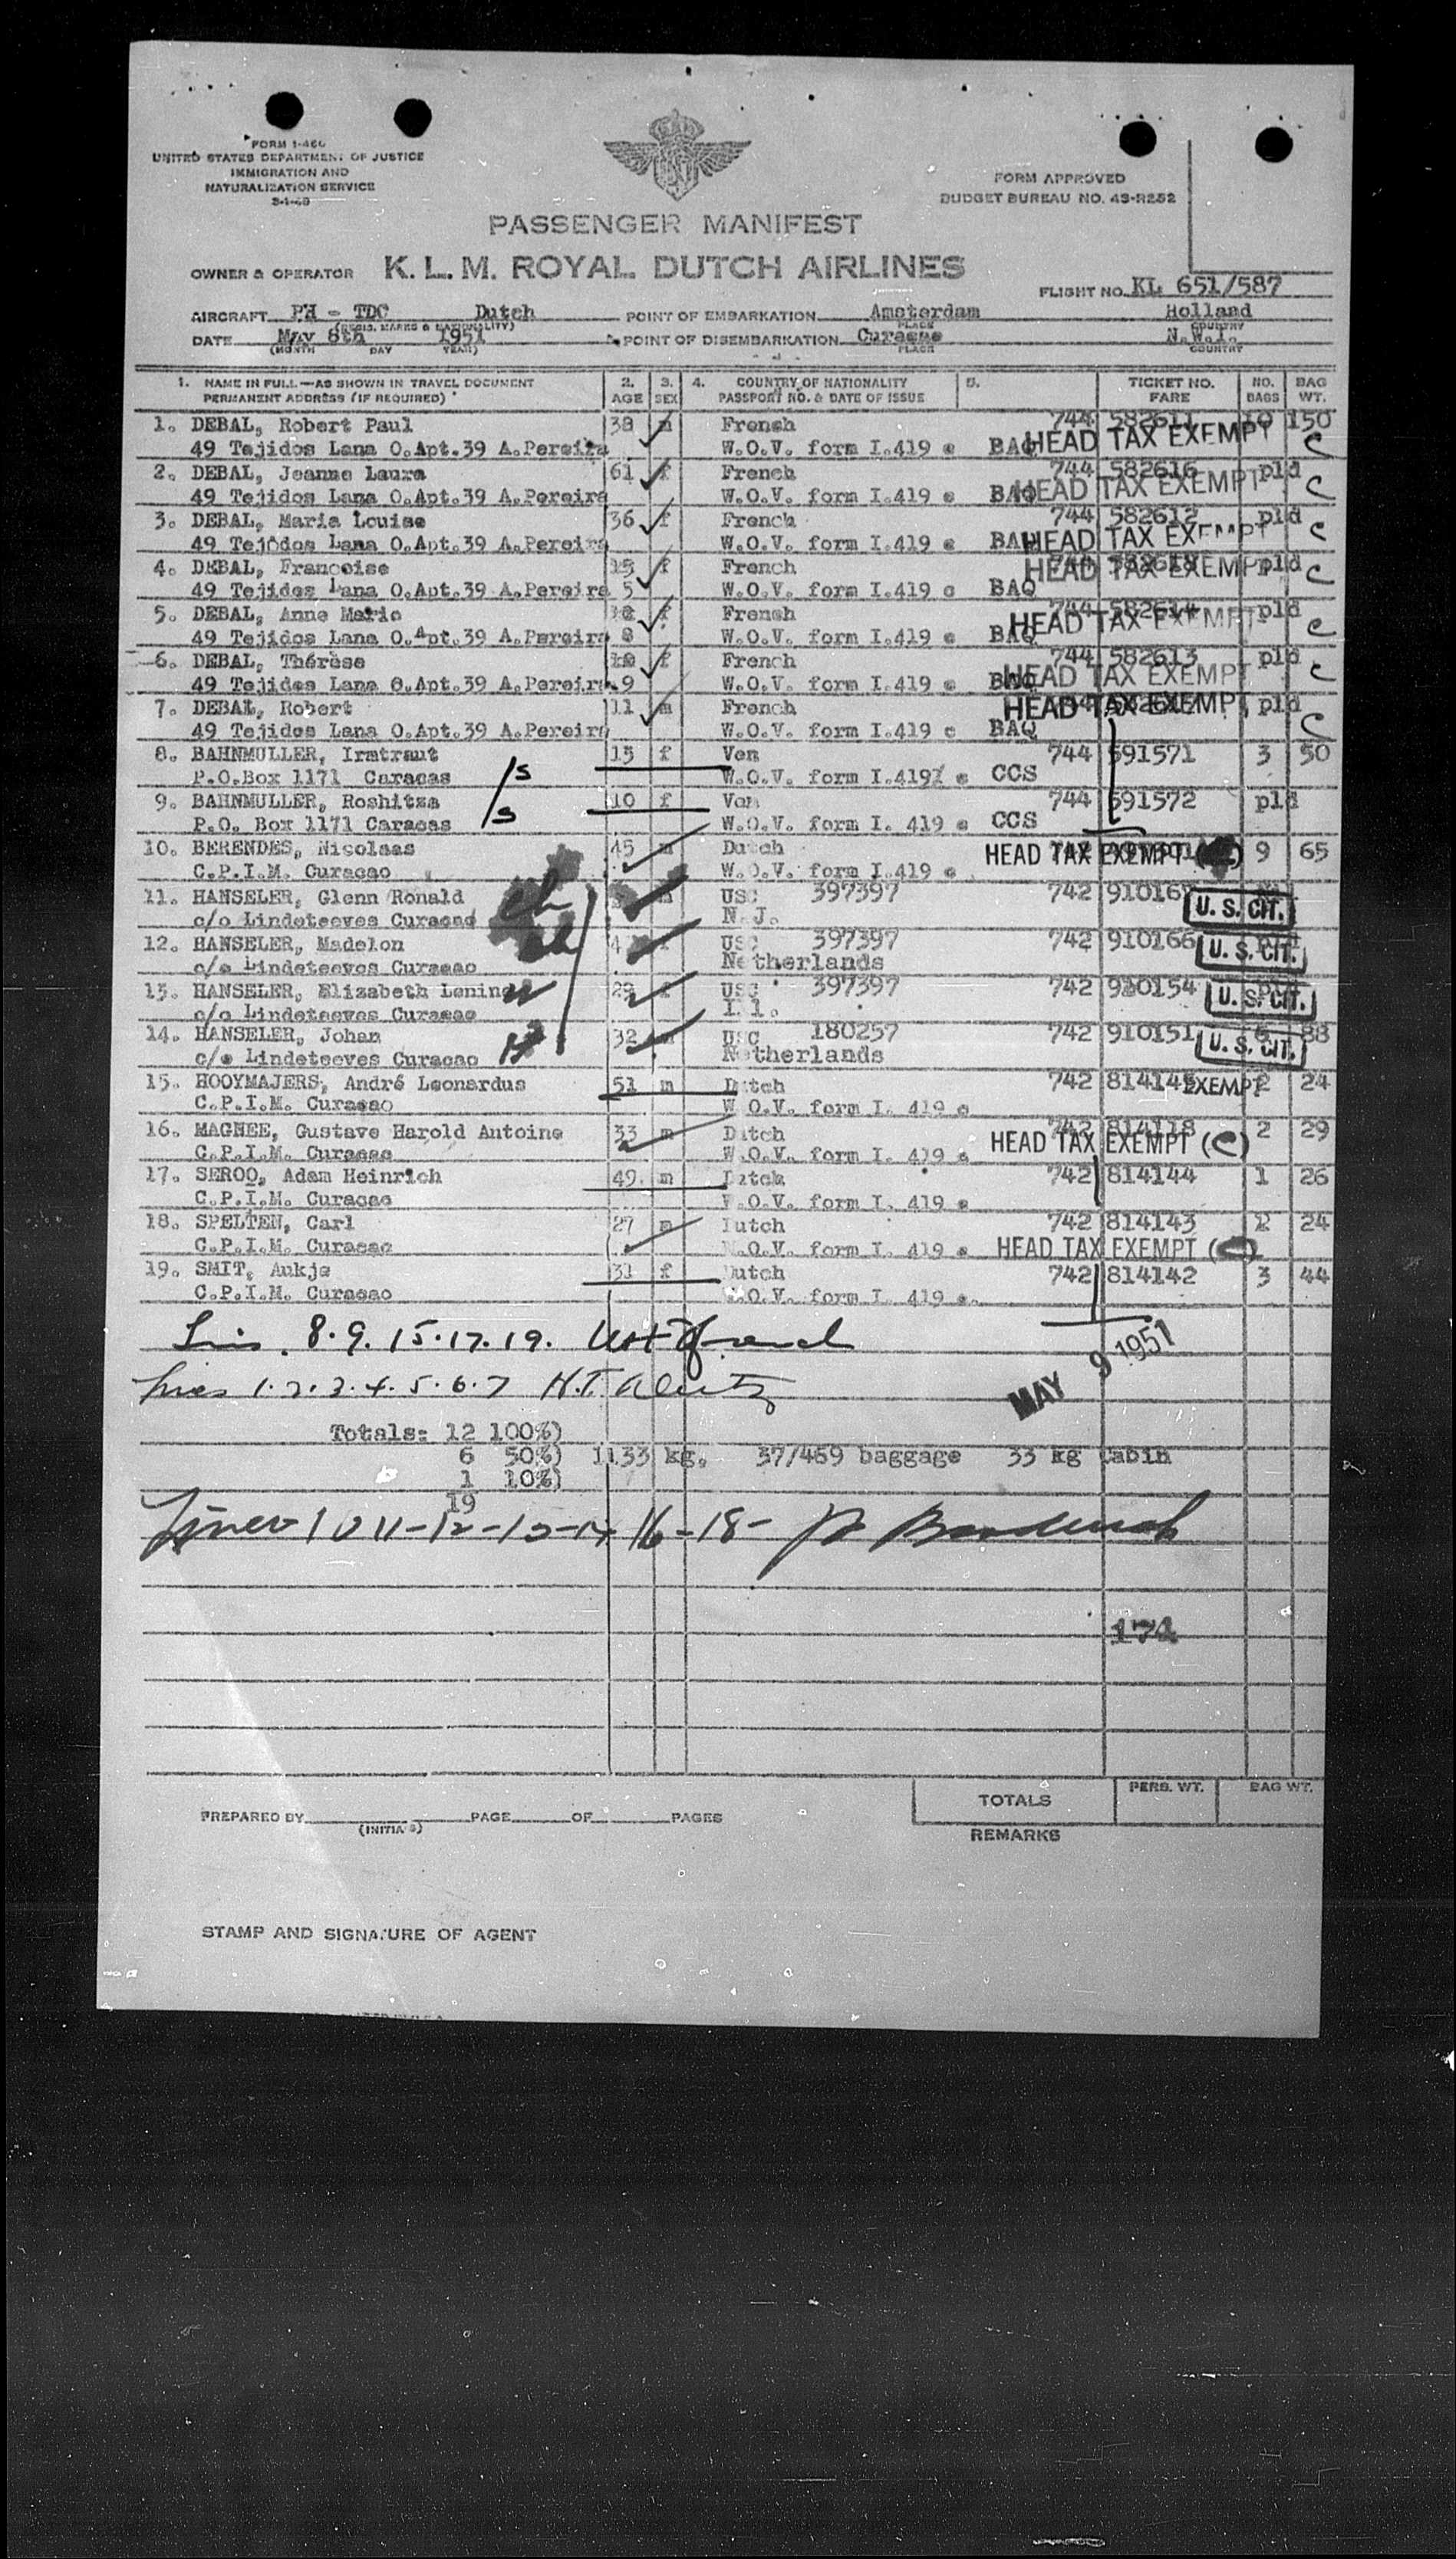 FORM I-466
UNITED STATES DEPARTMENT OF JUSTICE
IMMIGRATION AND
NATURALIZATION SERVICE
FORM APPROVED
BUDGET BUREAU NO. 43-R252
PASSENGER MANIFEST
OWNER & OPERATOR K. L. M. ROYAL DUTCH AIRLINES
FLIGHT NO. KL 651/587
AIRCRAFT PH - TDC Dutch POINT OF EMBARKATION Amsterdam Holland
(REGIS. MARKS & NATIONALITY) PLACE COUNTRY
DATE May 8th 1951 POINT OF DISEMBARKATION Curacao N.W.I.
(MONTH DAY YEAR) PLACE COUNTRY
1. NAME IN FULL—AS SHOWN IN TRAVEL DOCUMENT 2. 3. 4. COUNTRY OF NATIONALITY 5. TICKET NO. NO. BAG
PERMANENT ADDRESS (IF REQUIRED) AGE SEX PASSPORT NO. & DATE OF ISSUE FARE BAGS WT.
1. DEBAL, Robert Paul 38 m French 744 582611 10 150
49 Tejidos Lana O.Apt.39 A.Pereira W.O.V. form I.419 e BAQ HEAD TAX EXEMPT C
2. DEBAL, Jeanne Laura 61 f French 744 582616 pld
49 Tejidos Lana O.Apt.39 A.Pereira W.O.V. form I.419 e BAQ HEAD TAX EXEMPT C
3. DEBAL, Marie Louise 36 f French 744 582612 pld
49 Tejodos Lana O.Apt.39 A.Pereira W.O.V. form I.419 e BAQ HEAD TAX EXEMPT C
4. DEBAL, Francoise f French pld
49 Tejidos Lana O.Apt.39 A.Pereira 5 W.O.V. form I.419 e BAQ HEAD TAX EXEMPT C
5. DEBAL, Anne Marie f French 744 582614 pld
49 Tejidos Lana O.Apt.39 A.Pereira 8 W.O.V. form I.419 e BAQ HEAD TAX EXEMPT C
6. DEBAL, Thérèse f French 744 582613 pld
49 Tejidos Lana O.Apt.39 A.Pereira 9 W.O.V. form I.419 e HEAD TAX EXEMPT C
7. DEBAL, Robert 11 m French HEAD TAX EXEMPT pld
49 Tejidos Lana O.Apt.39 A.Pereira W.O.V. form I.419 e BAQ C
8. BAHNMULLER, Irmtraut 15 f Ven 744 591571 3 50
P.O.Box 1171 Caracas /s W.O.V. form I.419 e CCS
9. BAHNMULLER, Roshitza 10 f Ven 744 591572 pld
P.O. Box 1171 Caracas /s W.O.V. form I. 419 e CCS
10. BERENDES, Nicolaas 45 m Dutch HEAD TAX EXEMPT 9 65
C.P.I.M. Curacao W.O.V. form I.419 e
11. HANSELER, Glenn Ronald m USC 397397 742 U. S. CIT.
c/o Lindeteeves Curacao N.J.
12. HANSELER, Madelon 4 f USC 397397 742 910166 U. S. CIT.
c/o Lindeteeves Curacao Netherlands
13. HANSELER, Elizabeth 29 f USC 397397 742 910154 U. S. CIT.
c/o Lindeteeves Curacao
14. HANSELER, Johan 32 m USC 180257 742 910151 6 88 U. S. CIT.
c/o Lindeteeves Curacao Netherlands
15. HOOYMAJERS, André Leonardus 51 m Dutch 742 EXEMPT 2 24
C.P.I.M. Curacao W.O.V. form I. 419 e
16. MAGNEE, Gustave Harold Antoine 33 m Dutch 742 814118 2 29
C.P.I.M. Curacao W.O.V. form I. 419 e HEAD TAX EXEMPT (C)
17. SEROO, Adam Heinrich 49 m Dutch 742 814144 1 26
C.P.I.M. Curacao W.O.V. form I. 419 e
18. SPELTEN, Carl 27 m Dutch 742 814143 2 24
C.P.I.M. Curacao W.O.V. form I. 419 e HEAD TAX EXEMPT
19. SMIT, Aukje 31 f Dutch 742 814142 3 44
C.P.I.M. Curacao W.O.V. form I. 419 e.
8. 9. 15. 17. 19.
MAY 9 1951
1. 2. 3. 4. 5. 6. 7 H.T.
Totals: 12 100%)
6 50%) 1133 kg. 37/469 baggage 33 kg cabin
1 10%)
19
Lines 10 11-12-13-14 16-18-
174
TOTALS PERS. WT. BAG WT.
PREPARED BY PAGE OF PAGES
(INITIALS)
REMARKS
STAMP AND SIGNATURE OF AGENT